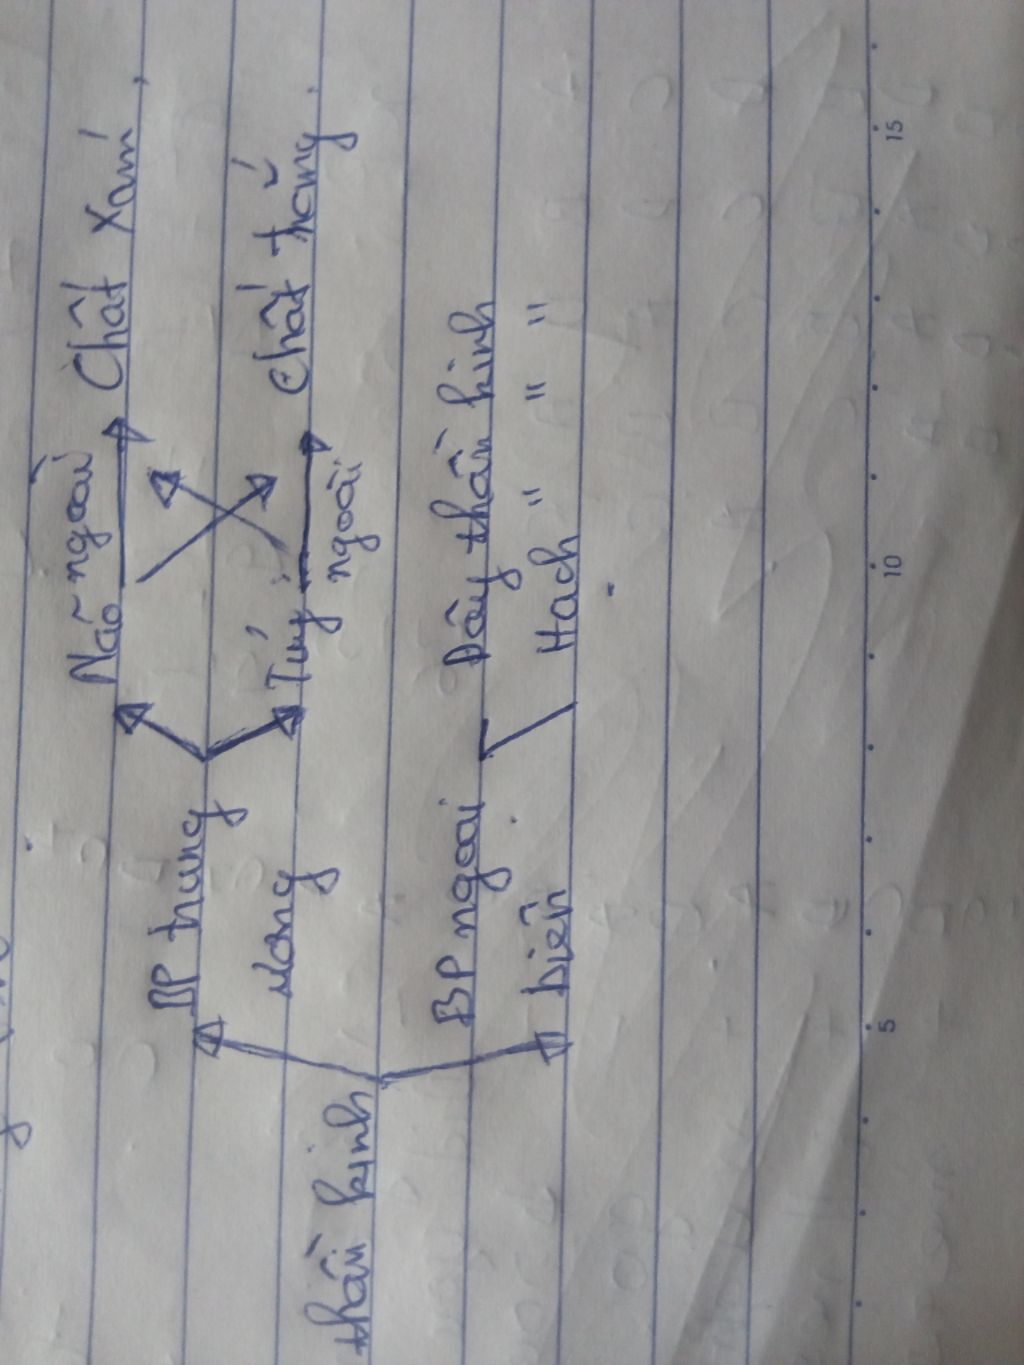 Não ngoài Chất xám
BP trung
ương
Tủy ngoài Chất trắng
thần kinh
BP ngoài Dây thần kinh
biên Hạch " " "
5 10 15